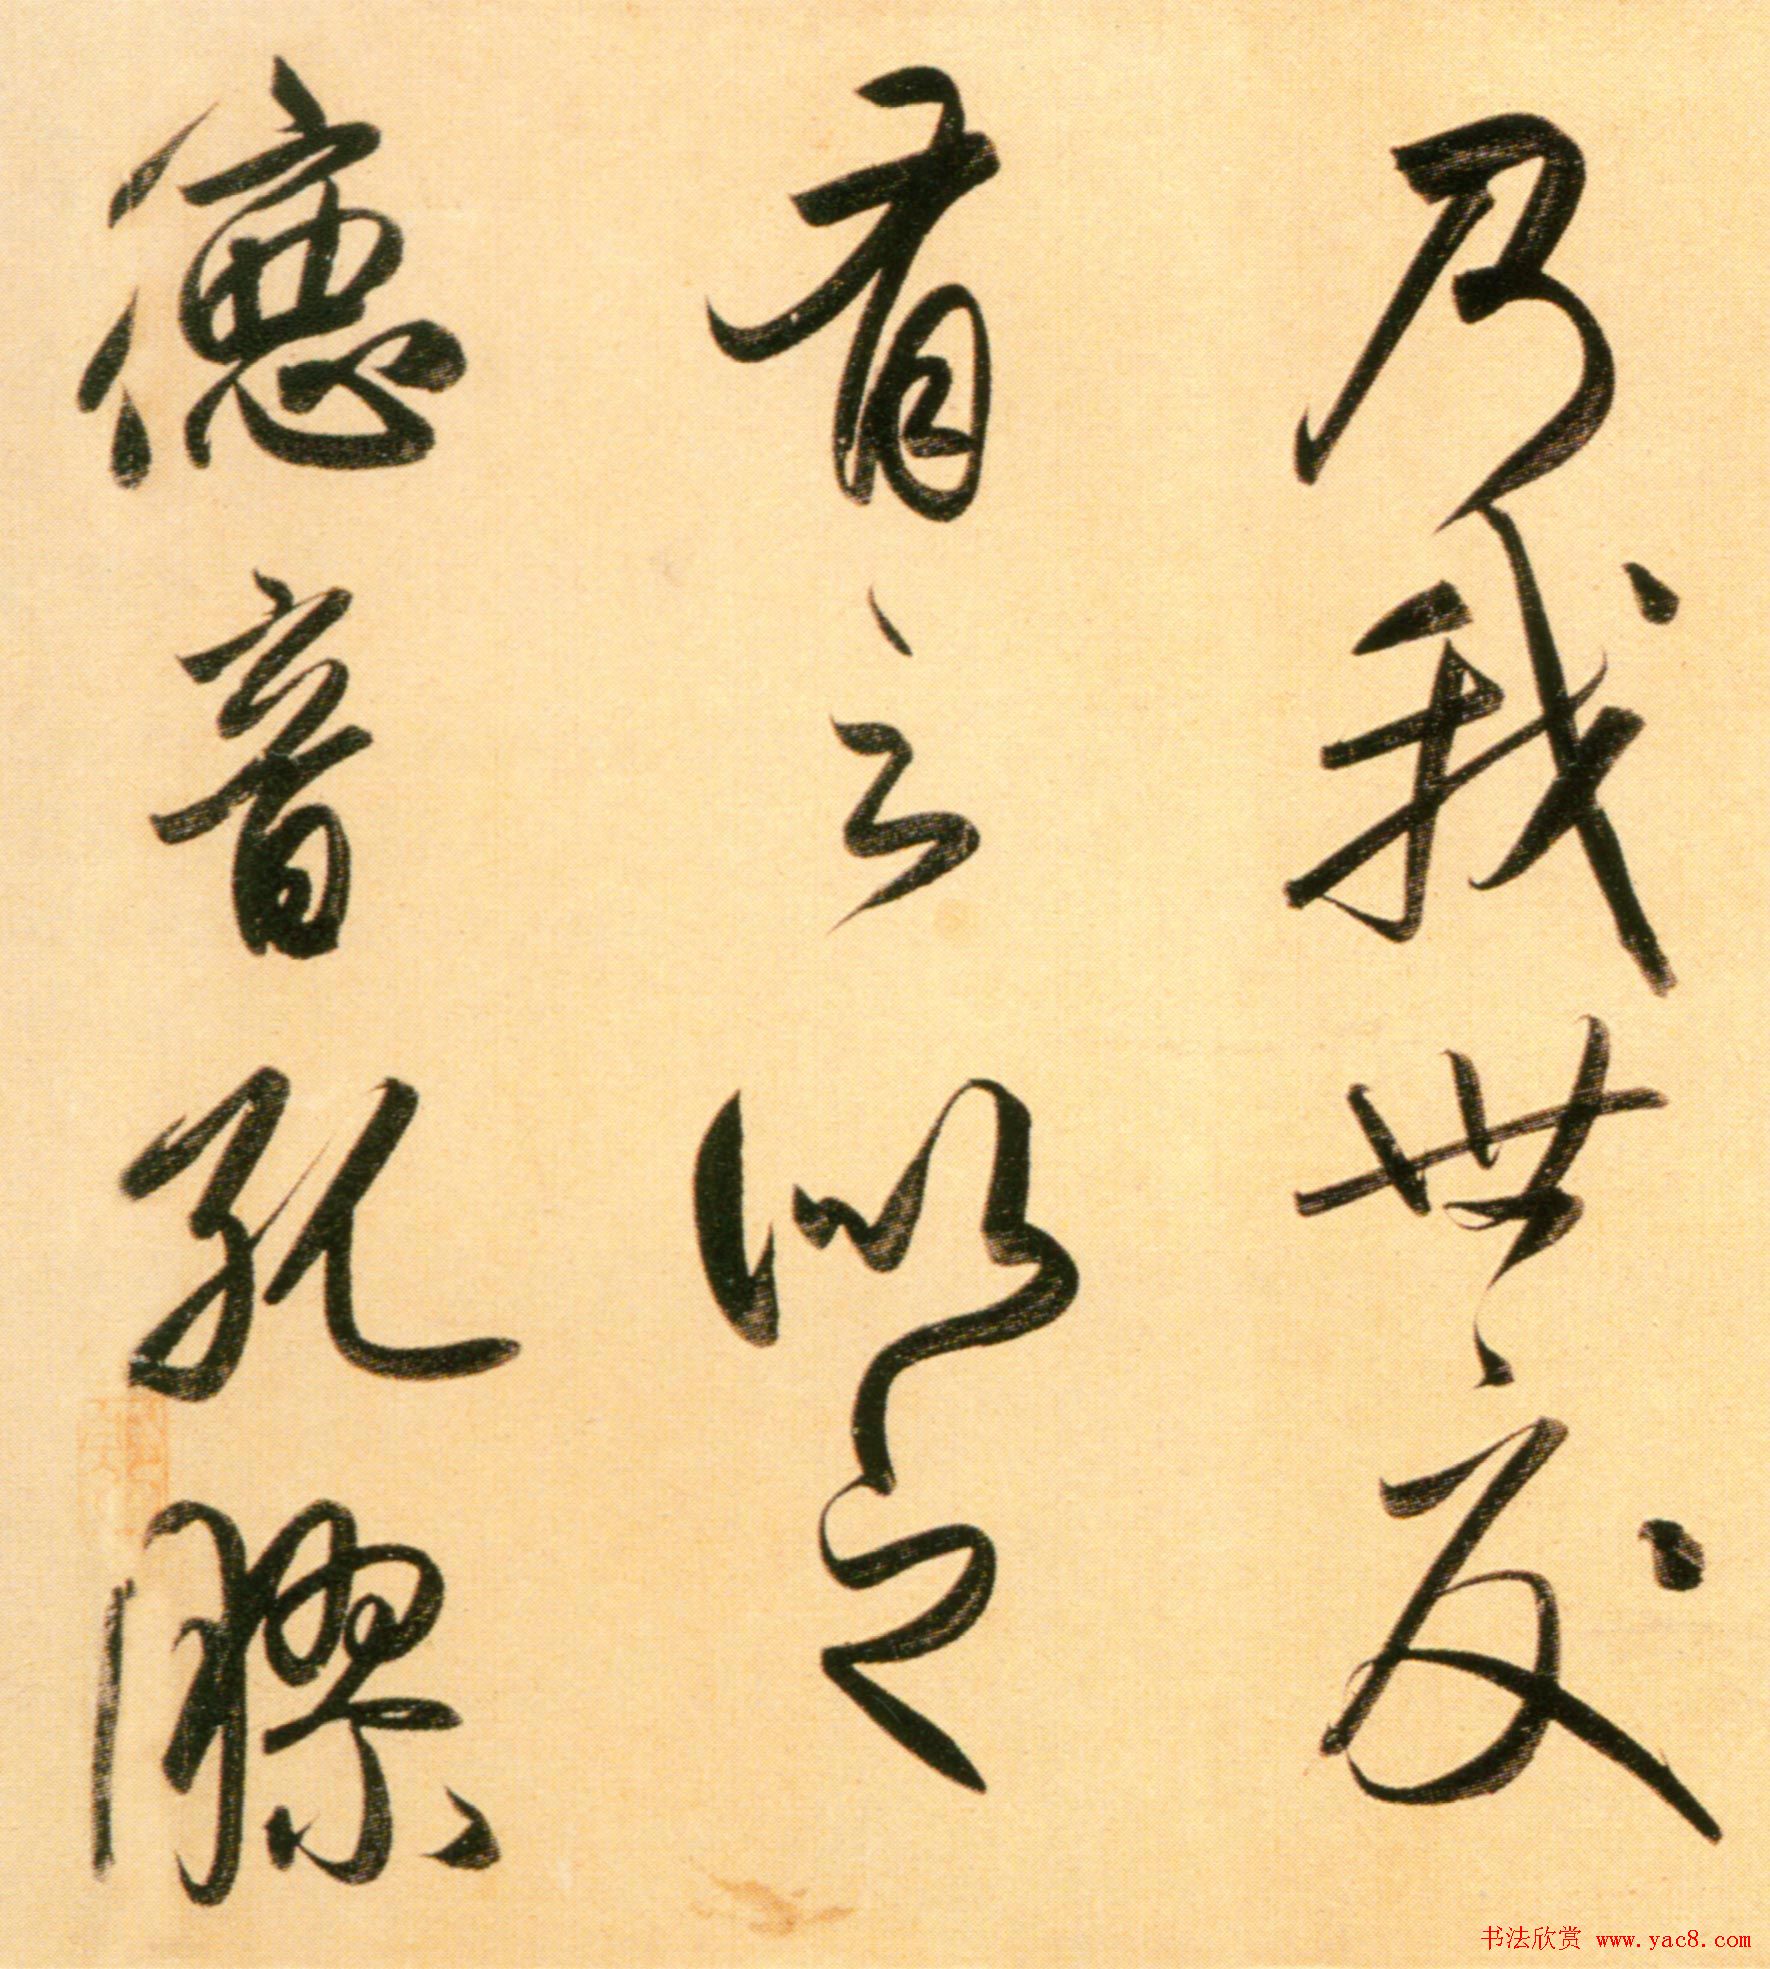 乃我世友
似之
德音孔膠
书法欣赏 www.yac8.com